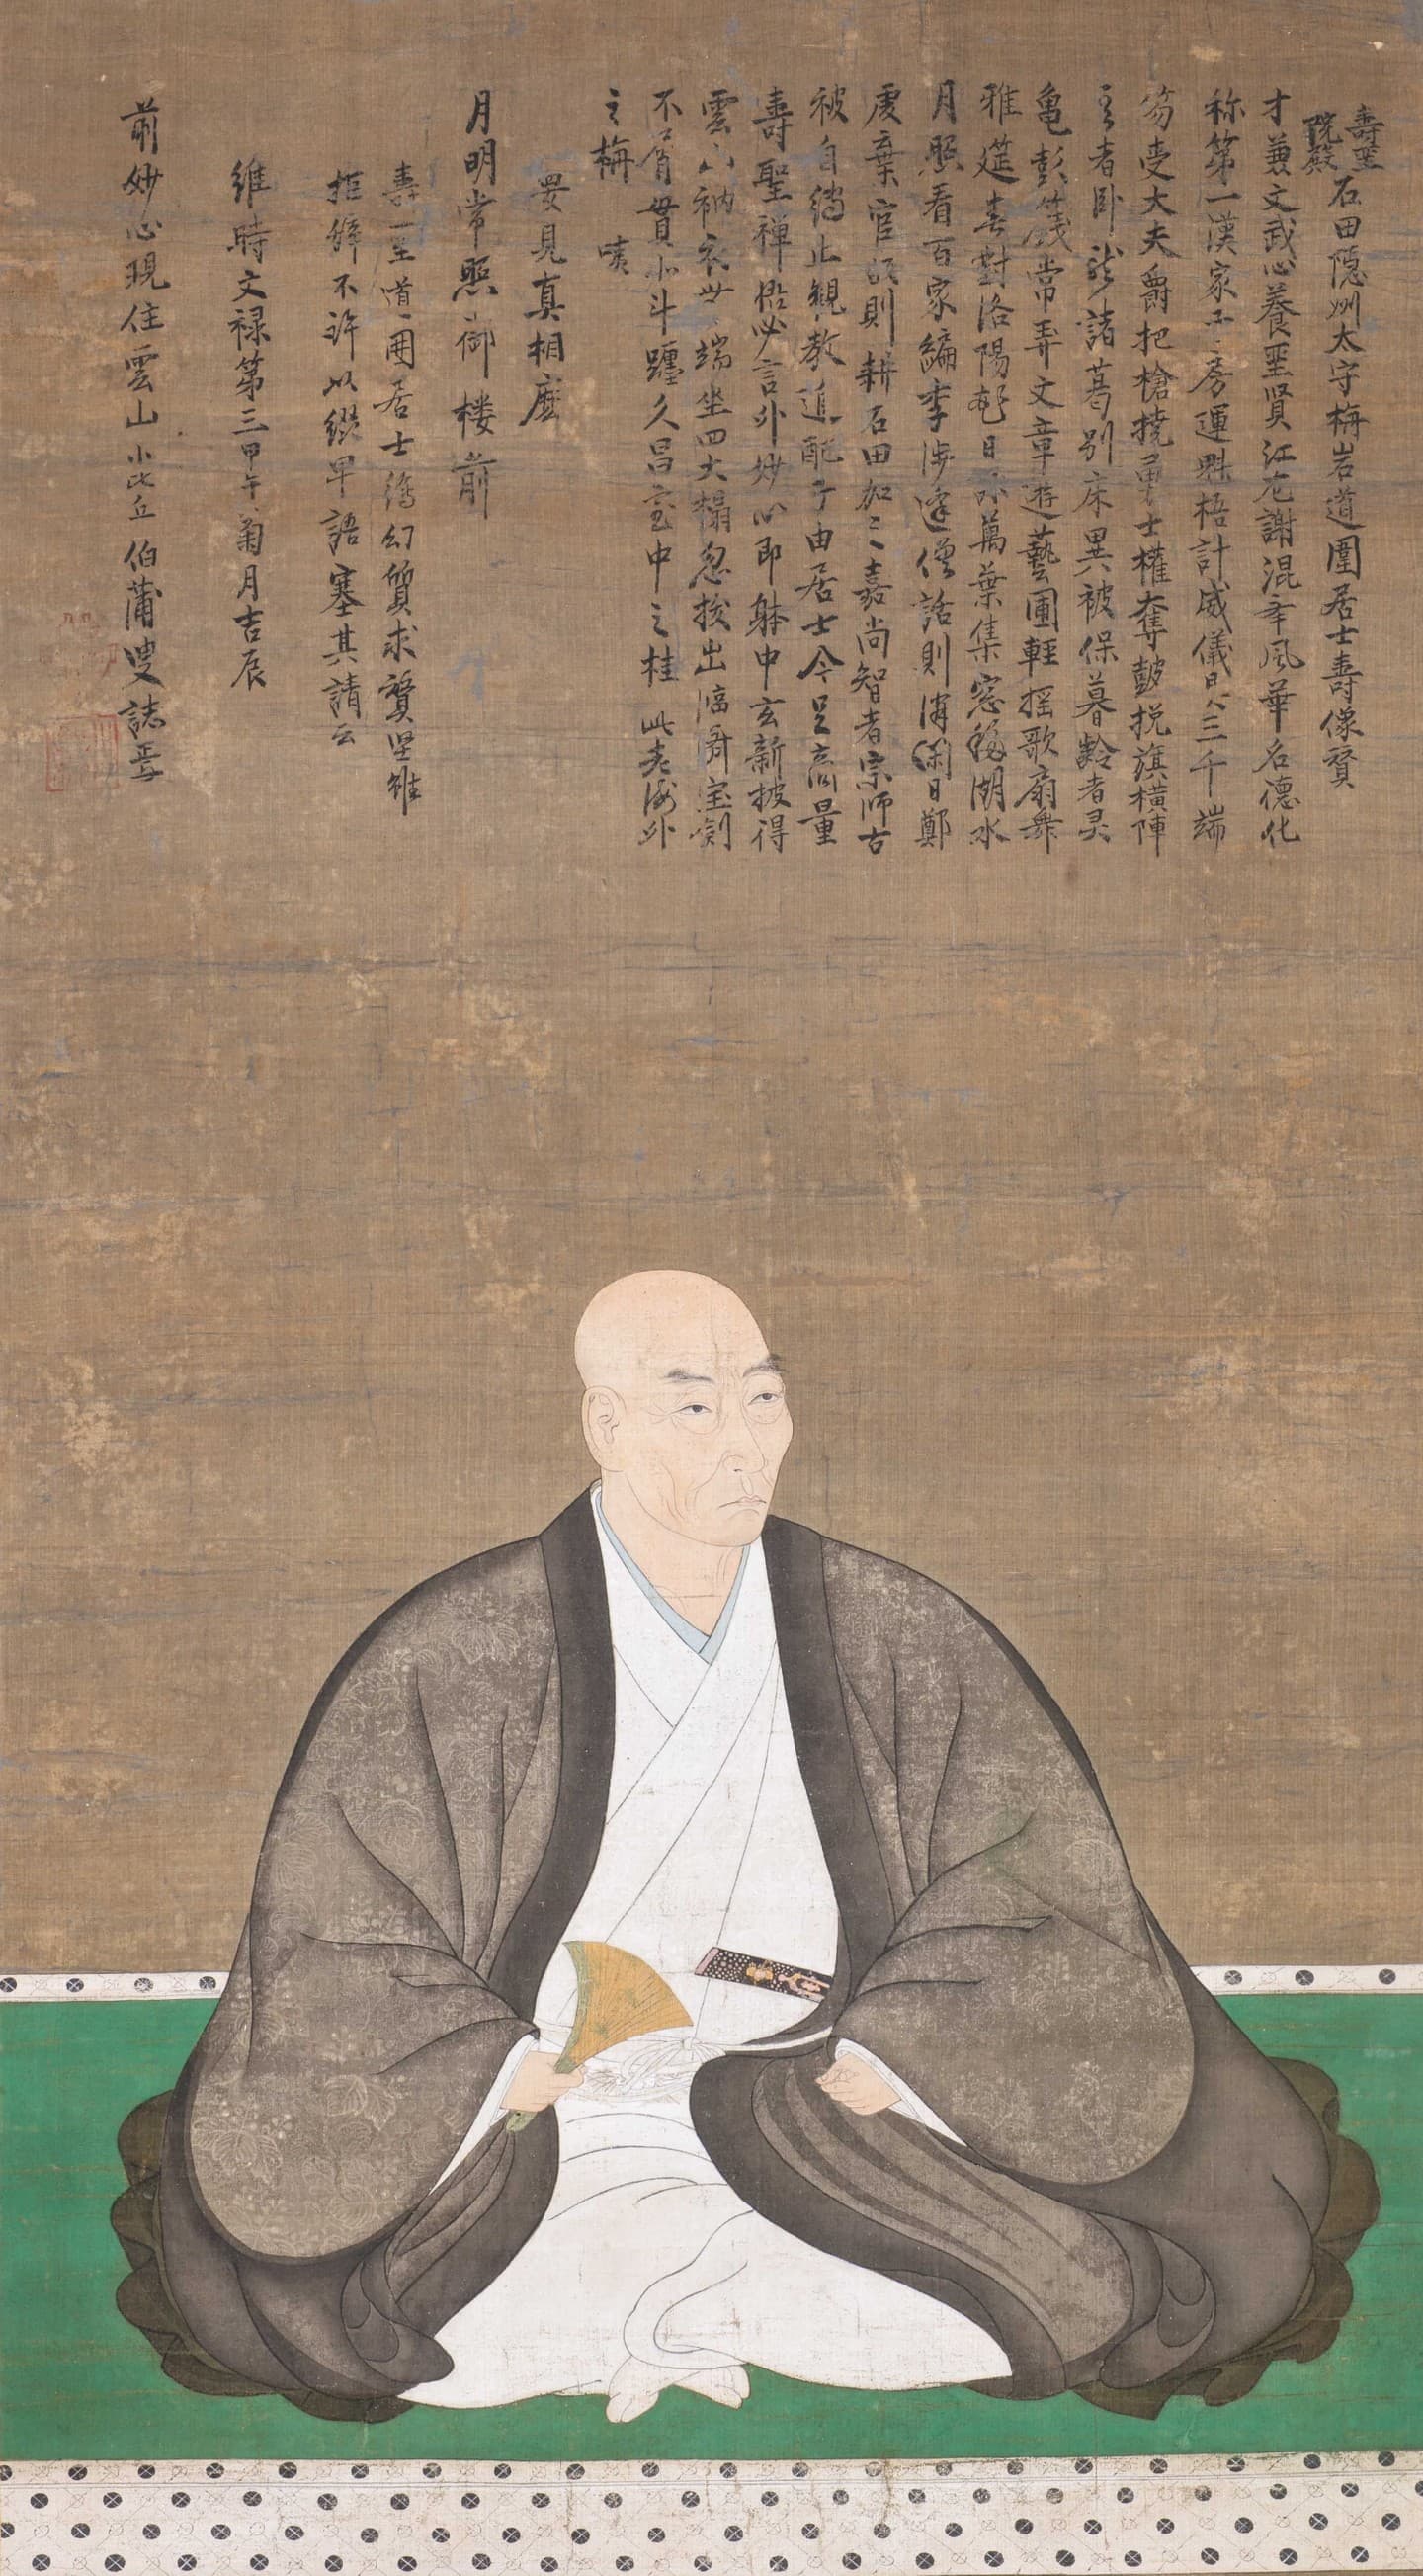 壽聖院殿石田隠州太守梅岩道圍居士壽像賛
才兼文武心養聖賢江左謝混年風華名德化
称第一漢家子房運既梧計威儀日三千端
笏受大夫爵把槍撓勇士權奪鼓挽旗横陣
者臥龍諸葛別床異被保暮齡者
亀彭箋常弄文章遊藝圃輕揺歌扇舞
雅筵春對洛陽花日 萬葉集窓移湖水
月照看百家編李渉逢僧話則消閑日鄭
虔棄官 則耕石田加之嘉尚智者宗師古
被自縛止觀教迫配子由居士今足商量
壽聖禪 必言外妙心即躰中玄新披得
雲 衲衣 端坐四大榻忽拔出臨濟宝劍
不 貫北斗躔久昌 中之桂 此老海外
之梅 咦
要見真相麼
月明常照御楼前
壽聖道圍居士 幻質求賛
拒辞不許以綴早語塞其請云
維時文禄第三甲午菊月吉辰
前妙心現住雲山小比丘伯蒲叟誌焉